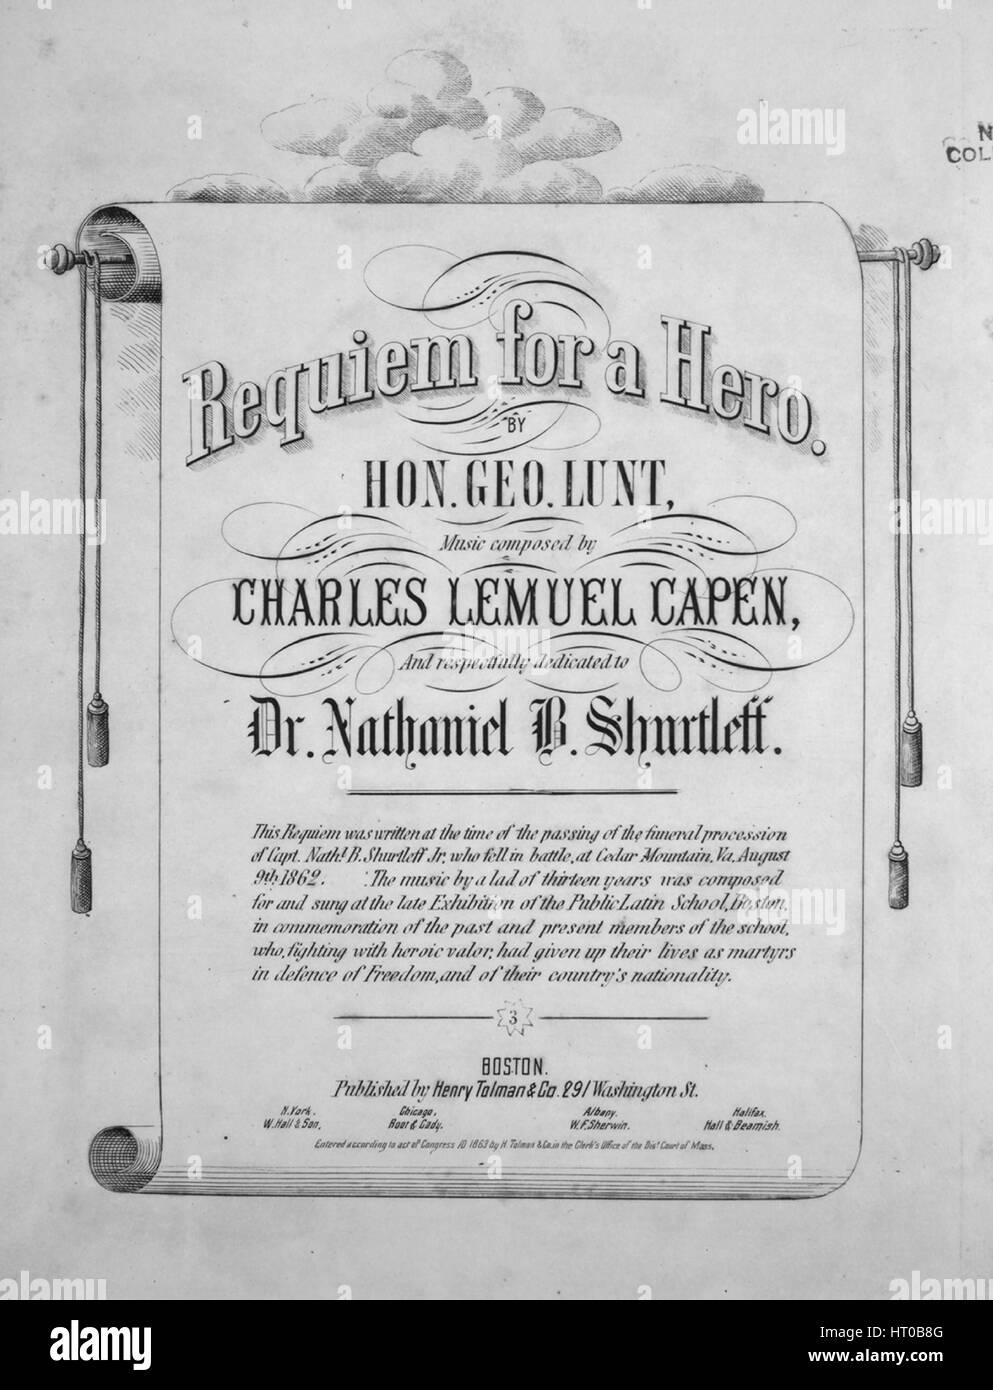 N
COL
Requiem for a Hero.
BY
HON. GEO. LUNT,
Music composed by
CHARLES LEMUEL CAPEN,
And respectfully dedicated to
Dr. Nathaniel B. Shurtleff.
This Requiem was written at the time of the passing of the funeral procession
of Capt. Nathl. B. Shurtleff Jr, who fell in battle, at Cedar Mountain, Va, August
9th, 1862. The music by a lad of thirteen years was composed
for and sung at the late Exhibition of the Public Latin School, Boston,
in commemoration of the past and present members of the school,
who, fighting with heroic valor, had given up their lives as martyrs
in defence of Freedom, and of their country's nationality.
3
BOSTON.
Published by Henry Tolman & Co. 291 Washington St.
N. York. Chicago, Albany. Halifax.
W. Hall & Son, Root & Cady. W. F. Sherwin. Hall & Beamish.
Entered according to act of Congress AD 1863 by H. Tolman & Co. in the Clerk's Office of the Dist. Court of Mass.
alamy
alamy stock photo
HT0B8G
www.alamy.com